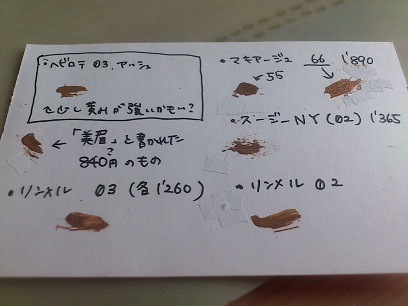 ・ヘビロテ 03.アッシュ
すこし黄みが強いかもい?
←「美眉」と書かれた
?
840円のもの
・リンメル 03(各1'260)
・マキアージュ 66 1'890
55
・スージーNY(02)1'365
・リンメル 02